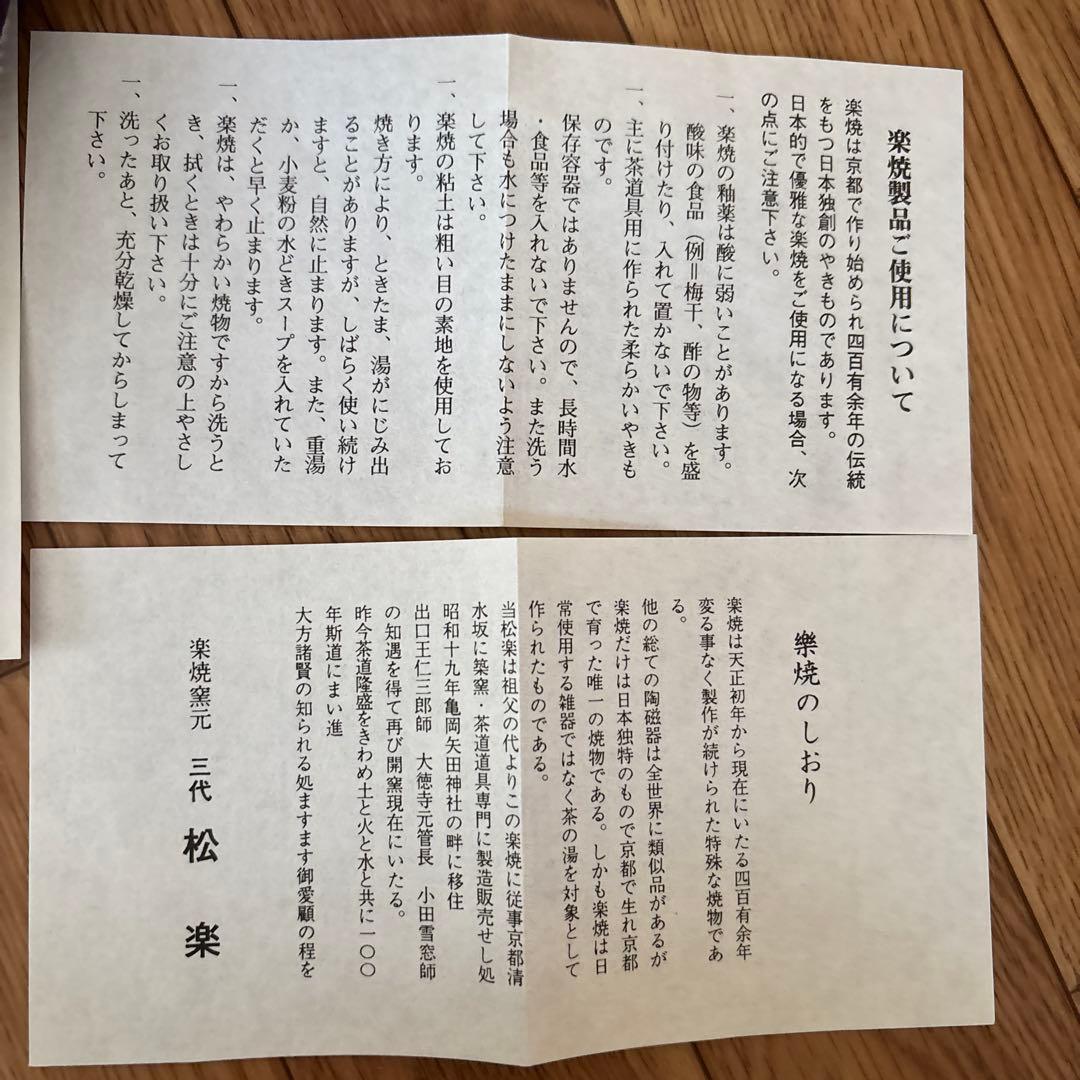 楽焼製品ご使用について
楽焼は京都で作り始められ四百有余年の伝統
をもつ日本独創のやきものであります。
日本的で優雅な楽焼をご使用になる場合、次
の点にご注意下さい。
一、楽焼の釉薬は酸に弱いことがあります。
酸味の食品（例＝梅干、酢の物等）を盛
り付けたり、入れて置かないで下さい。
一、主に茶道具用に作られた柔らかいやきも
のです。
保存容器ではありませんので、長時間水
・食品等を入れないで下さい。また洗う
場合も水につけたままにしないよう注意
して下さい。
一、楽焼の粘土は粗い目の素地を使用してお
ります。
焼き方により、ときたま、湯がにじみ出
ることがありますが、しばらく使い続け
ますと、自然に止まります。また、重湯
か、小麦粉の水どきスープを入れていた
だくと早く止まります。
一、楽焼は、やわらかい焼物ですから洗うと
き、拭くときは十分にご注意の上やさし
くお取り扱い下さい。
一、洗ったあと、充分乾燥してからしまって
下さい。
樂焼のしおり
楽焼は天正初年から現在にいたる四百有余年
変る事なく製作が続けられた特殊な焼物であ
る。
他の総ての陶磁器は全世界に類似品があるが
楽焼だけは日本独特のもので京都で生れ京都
で育った唯一の焼物である。しかも楽焼は日
常使用する雑器ではなく茶の湯を対象として
作られたものである。
当松楽は祖父の代よりこの楽焼に従事京都清
水坂に築窯・茶道道具専門に製造販売せし処
昭和十九年亀岡矢田神社の畔に移住
出口王仁三郎師　大徳寺元管長　小田雪窓師
の知遇を得て再び開窯現在にいたる。
昨今茶道隆盛をきわめ土と火と水と共に一〇〇
年斯道にまい進
大方諸賢の知られる処ますます御愛顧の程を
楽焼窯元　三代　松　楽